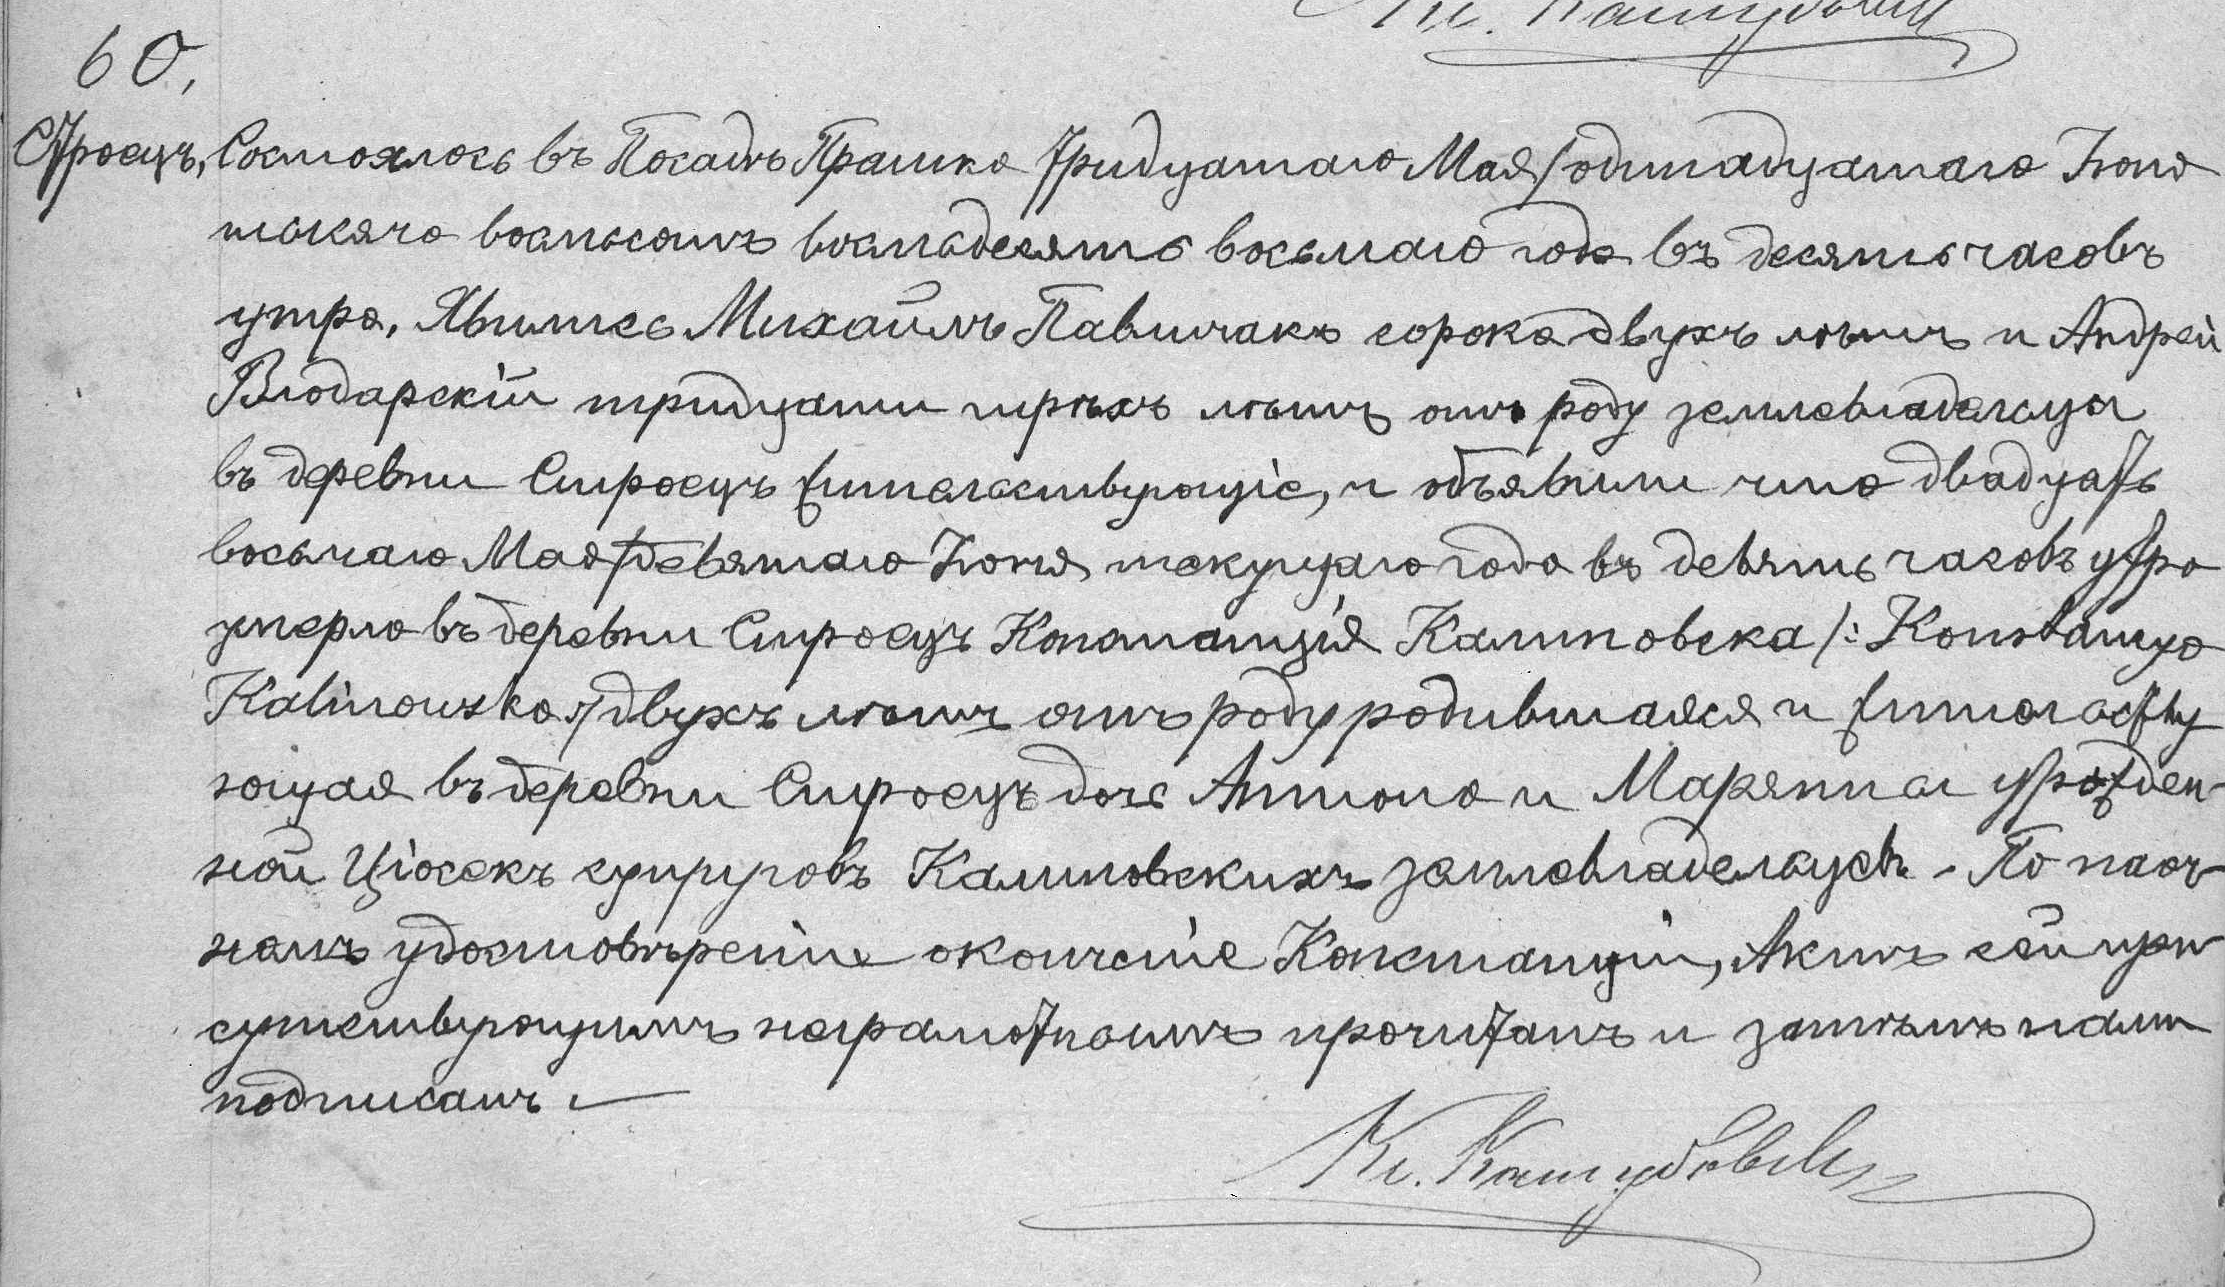 Кс. Кашубовск
60,
Строецъ, Состоялось въ Посадѣ Прашка тридцатаго Мая / одинадцатаго Іюня
тысяча восмьсотъ восмьдесятъ восьмаго года въ десять часовъ
утра, Явились Михаилъ Павличакъ сорока двухъ лѣтъ и Андрей
Влодарскій тридцати трехъ лѣтъ отъ роду землевладельцы
въ деревни Строецъ жительствующіе, и объявили что двадцать
восьмаго Мая / девятаго Іюня текущаго года въ девять часовъ утра
умерла въ деревни Строецъ Констанція Калиновска /: Konstancya
Kalinowska :/ двухъ лѣтъ отъ роду родившаяся и жительству
ющая въ деревни Строецъ дочь Антона и Маряны урожден-
ной Ціосекъ супруговъ Калиновскихъ землевладельцевъ – По наоч-
номъ удостовѣреніи окончаніе Констанціи, Актъ сей при
сутствующимъ неграмотнымъ прочитанъ и затѣмъ нами
подписанъ. —